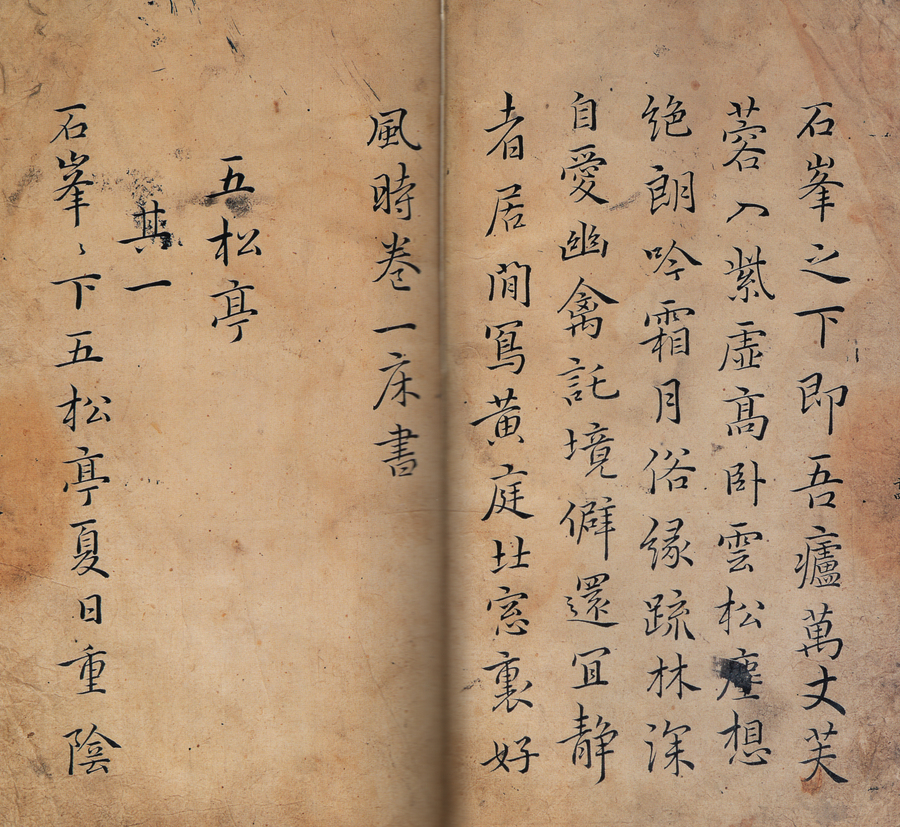 石峯之下即吾廬萬丈芙
蓉入紫虛髙卧雲松塵想
絶朗吟霜月俗縁䟽林深
自愛幽禽託境僻還冝静
者居閒寫黃庭北窓裏好
風時卷一床書
五松亭
其一
石峯〻下五松亭夏日重陰